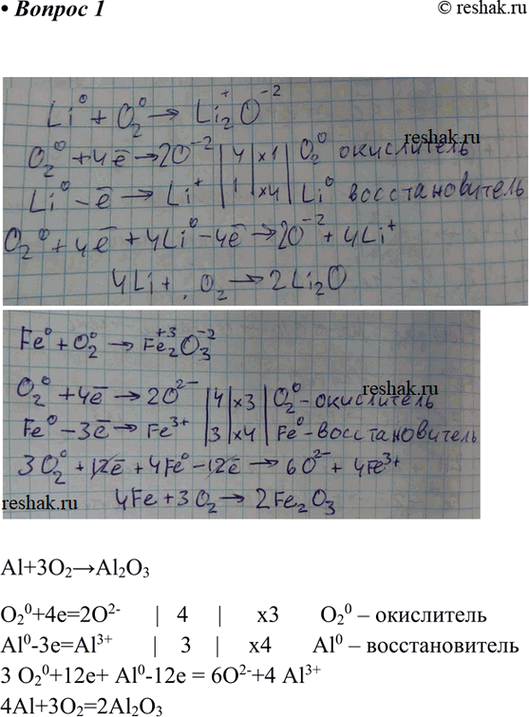 • Вопрос 1
© reshak.ru
Li⁰ + O₂⁰ → Li₂⁺O⁻²
reshak.ru
O₂⁰ + 4ē → 2O⁻² | 4 | x1 | O₂⁰ окислитель
Li⁰ - ē → Li⁺ | 1 | x4 | Li⁰ восстановитель
O₂⁰ + 4ē + 4Li⁰ - 4ē → 2O⁻² + 4Li⁺
4Li + O₂ → 2Li₂O
Fe⁰ + O₂⁰ → Fe₂⁺³O₃⁻²
reshak.ru
O₂⁰ + 4ē → 2O²⁻ | 4 | x3 | O₂⁰ - окислитель
Fe⁰ - 3ē → Fe³⁺ | 3 | x4 | Fe⁰ - восстановитель
3O₂⁰ + 12ē + 4Fe⁰ - 12ē → 6O²⁻ + 4Fe³⁺
reshak.ru
4Fe + 3O₂ → 2Fe₂O₃
Al+3O₂→Al₂O₃
O₂⁰+4e=2O²⁻ | 4 | x3 O₂⁰ – окислитель
Al⁰-3e=Al³⁺ | 3 | x4 Al⁰ – восстановитель
3 O₂⁰+12e+ Al⁰-12e = 6O²⁻+4 Al³⁺
4Al+3O₂=2Al₂O₃